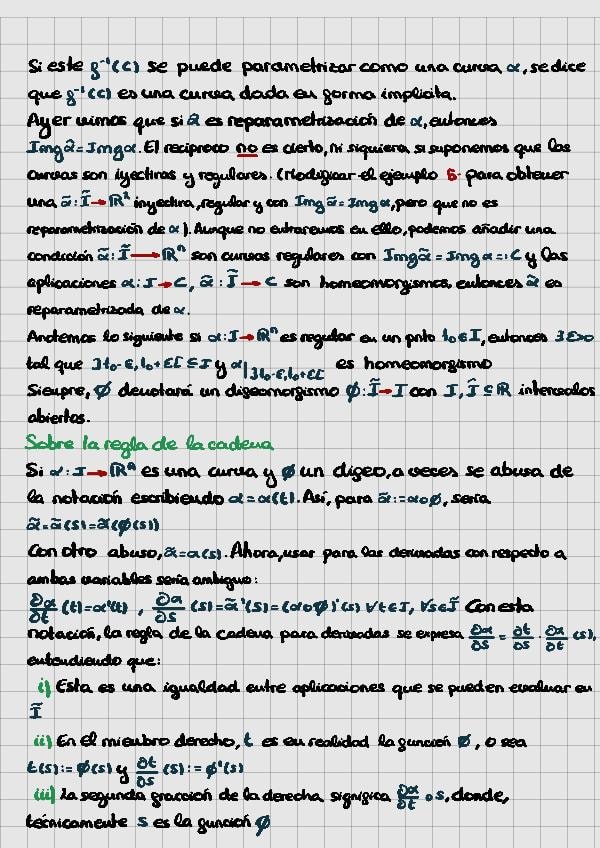 Si este f⁻¹(c) se puede parametrizar como una curva α, se dice
que f⁻¹(c) es una curva dada en forma implícita.
Ayer vimos que si α̃ es reparametrización de α, entonces
Img α̃ = Img α. El recíproco no es cierto, ni siquiera si suponemos que las
curvas son inyectivas y regulares. (Modificar el ejemplo 5 para obtener
una α̃ : Ĩ → ℝ² inyectiva, regular y con Img α̃ = Img α, pero que no es
reparametrización de α). Aunque no entraremos en ello, podemos añadir una
condición α̃ : Ĩ → ℝⁿ son curvas regulares con Img α̃ = Img α =: C y las
aplicaciones α : I → C, α̃ : Ĩ → C son homeomorgismos, entonces α̃ es
reparametrizada de α.
Anotemos lo siguiente si α : I → ℝⁿ es regular en un pnto t₀ ∈ I, entonces ∃ε>0
tal que ]t₀-ε, t₀+ε[ ⊆ I y α|]t₀-ε, t₀+ε[ es homeomorgismo
Siempre, ∅ denotará un difeomorgismo ∅ : Ĩ → I con I, Ĩ ⊆ ℝ intervalos
abiertos.
Sobre la regla de la cadena
Si α : I → ℝⁿ es una curva y ∅ un difeo, a veces se abusa de
la notación escribiendo α = α(t). Así, para α̃ := α∘∅, sería
α̃ = α̃(s) = α(∅(s))
Con otro abuso, α̃ = α(s). Ahora, usar para las derivadas con respecto a
ambas variables sería ambiguo:
∂α/∂t (t) = α'(t) , ∂α/∂s (s) = α̃'(s) = (α∘∅)'(s) ∀t∈I, ∀s∈Ĩ Con esta
notación, la regla de la cadena para derivadas se expresa ∂α/∂s = ∂t/∂s · ∂α/∂t (s),
entendiendo que:
i) Esta es una igualdad entre aplicaciones que se pueden evaluar en
Ĩ
ii) En el miembro derecho, t es en realidad la función ∅, o sea
t(s) := ∅(s) y ∂t/∂s (s) := ∅'(s)
iii) La segunda fracción de la derecha significa ∂α/∂t ∘ s, donde,
técnicamente s es la función ∅